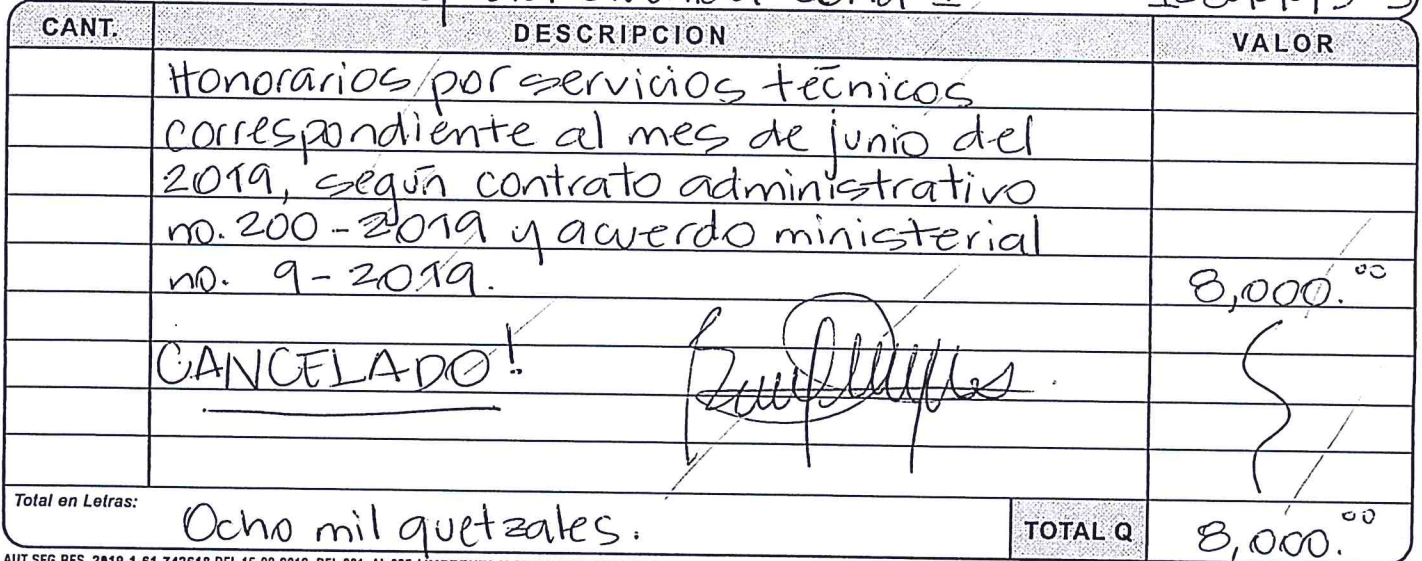 CANT. DESCRIPCION VALOR
Honorarios por servicios técnicos
correspondiente al mes de junio del
2019, según contrato administrativo
no. 200-2019 y acuerdo ministerial
no. 9-2019. 8,000.00
CANCELADO!
Total en Letras: Ocho mil quetzales. TOTAL Q 8,000.00